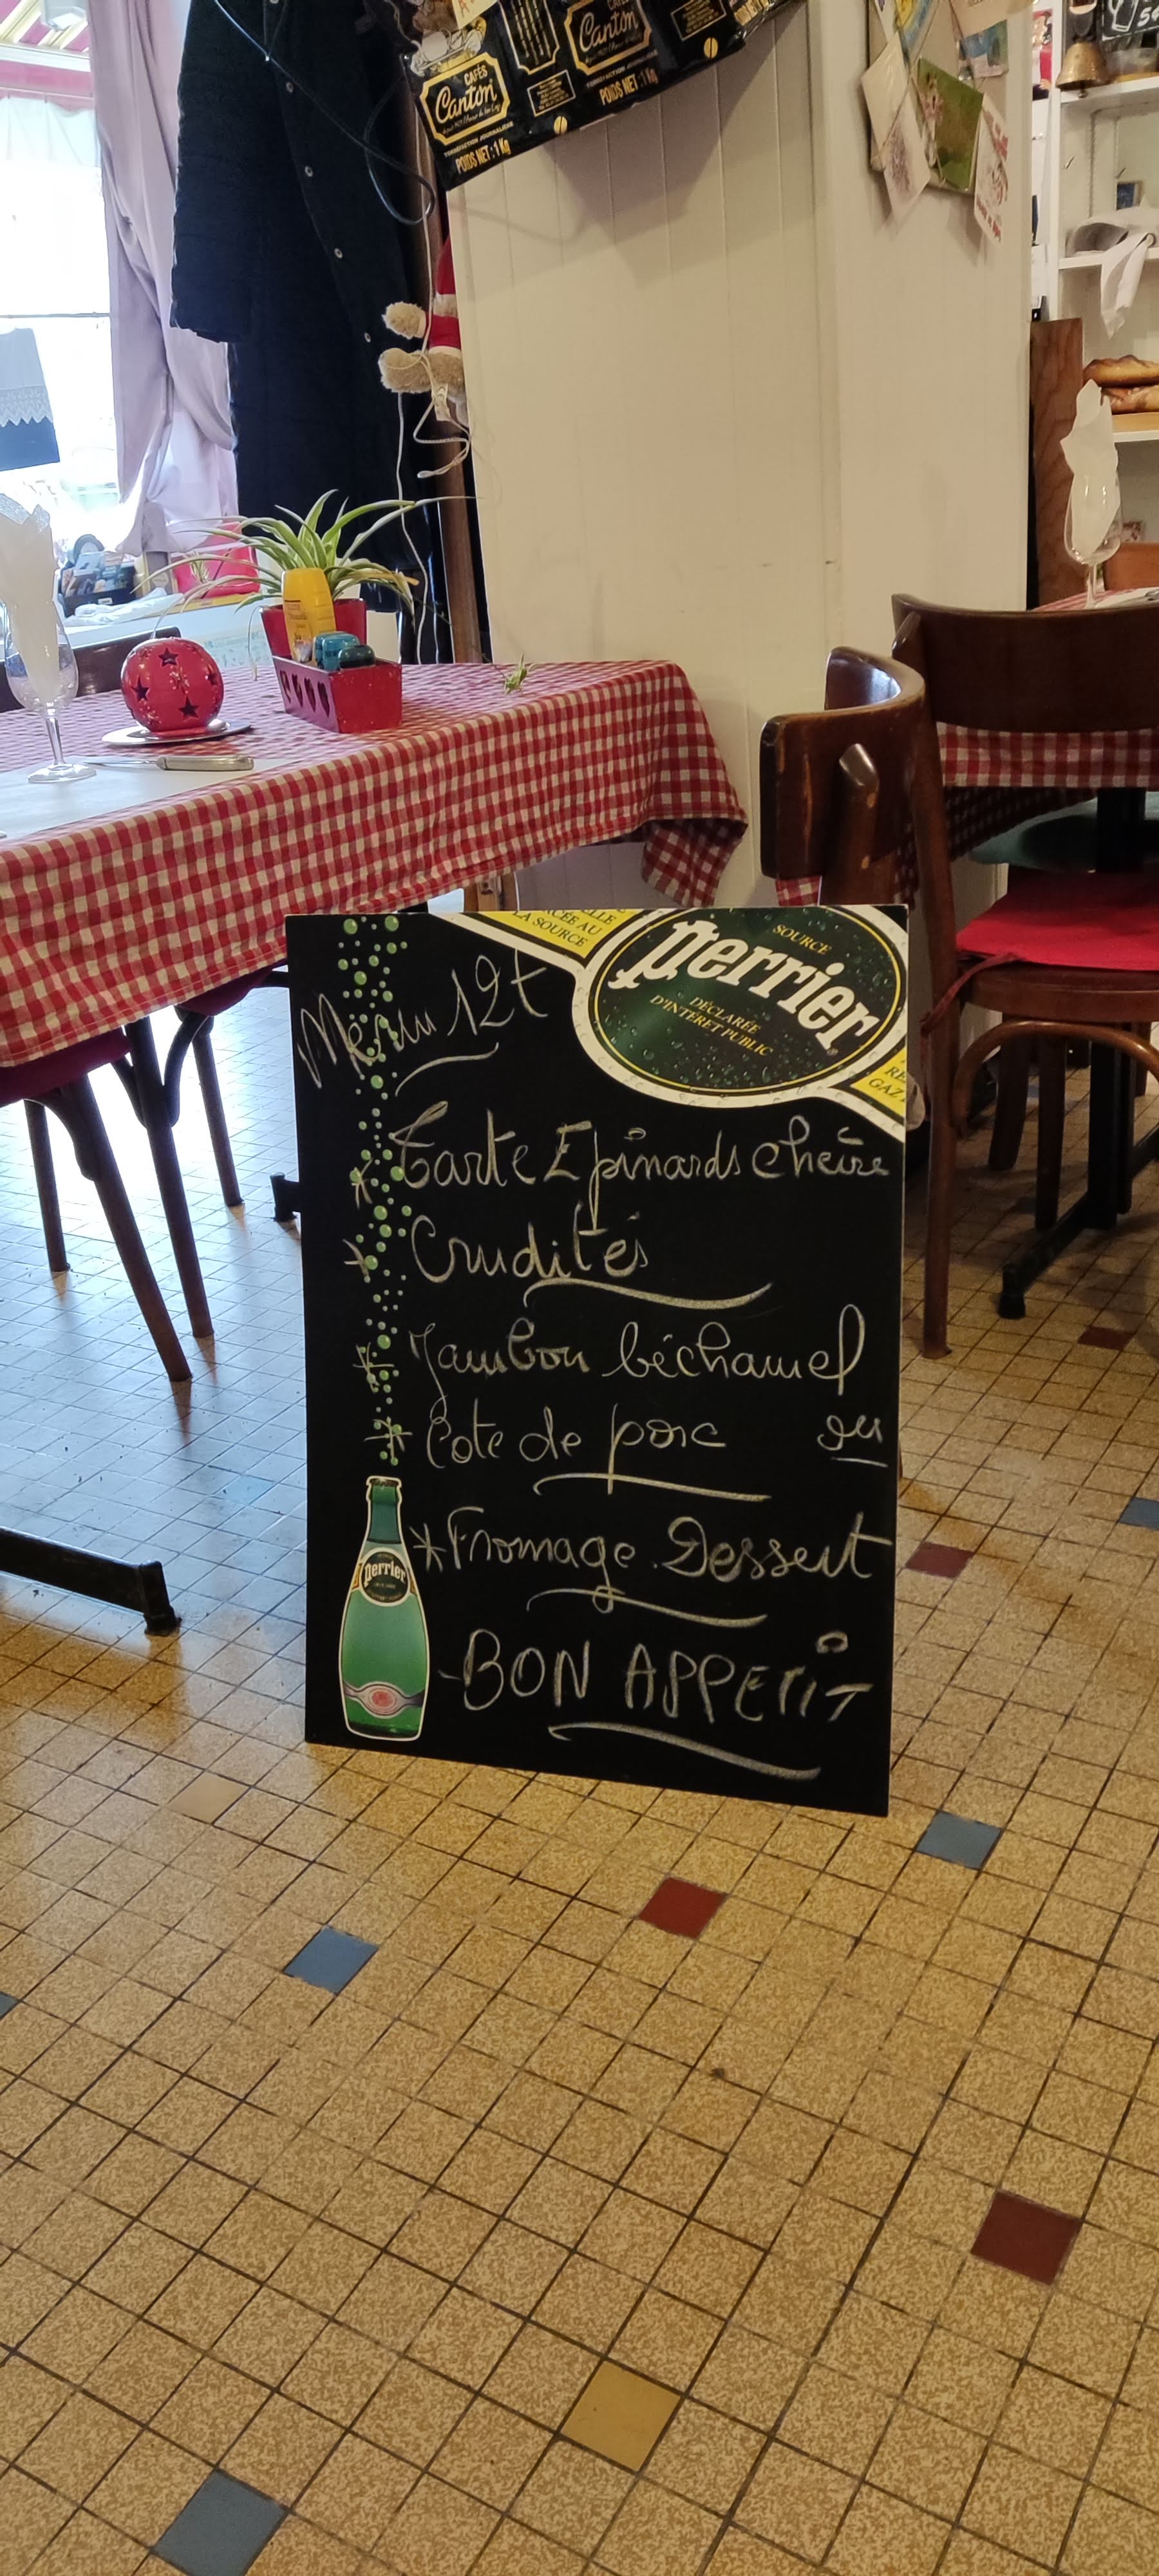 CAFÉS
Canton
TORRÉFACTION JOURNALIÈRE
POIDS NET : 1 Kg
CAFÉS
Canton
TORRÉFACTION JOURNALIÈRE
POIDS NET : 1 Kg
ELLE
RCÉE AU
LA SOURCE
SOURCE
perrier
DÉCLARÉE
D'INTÉRÊT PUBLIC
RE
GAZ
Menu 12€
* Tarte Epinards chèvre
* Crudités
* Jambon béchamel
* Cote de porc ou
* Fromage . Dessert
perrier
- BON APPETIT